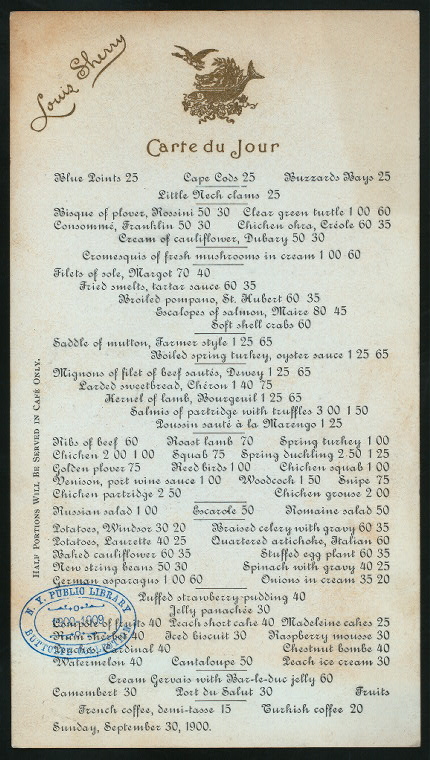 Louis Sherry
Carte du Jour
Blue Points 25 Cape Cods 25 Buzzards Bays 25
Little Neck clams 25
Bisque of plover, Rossini 50 30 Clear green turtle 1 00 60
Consommé, Franklin 50 30 Chicken okra, Créole 60 35
Cream of cauliflower, Dubary 50 30
Cromesquis of fresh mushrooms in cream 1 00 60
Filets of sole, Margot 70 40
Fried smelts, tartar sauce 60 35
Broiled pompano, St. Hubert 60 35
Escalopes of salmon, Maire 80 45
Soft shell crabs 60
Saddle of mutton, Farmer style 1 25 65
Boiled spring turkey, oyster sauce 1 25 65
Mignons of filet of beef sautés, Dewey 1 25 65
Larded sweetbread, Chéron 1 40 75
Kernel of lamb, Bourgeuil 1 25 65
Salmis of partridge with truffles 3 00 1 50
Poussin sauté à la Marengo 1 25
Ribs of beef 60 Roast lamb 70 Spring turkey 1 00
Chicken 2 00 1 00 Squab 75 Spring duckling 2 50 1 25
Golden plover 75 Reed birds 1 00 Chicken squab 1 00
Venison, port wine sauce 1 00 Woodcock 1 50 Snipe 75
Chicken partridge 2 50 Chicken grouse 2 00
Russian salad 1 00 Escarole 50 Romaine salad 50
Potatoes, Windsor 30 20 Braised celery with gravy 60 35
Potatoes, Laurette 40 25 Quartered artichoke, Italian 60
Baked cauliflower 60 35 Stuffed egg plant 60 35
New string beans 50 30 Spinach with gravy 40 25
German asparagus 1 00 60 Onions in cream 35 20
Puffed strawberry pudding 40
Jelly panachée 30
Compote of fruits 40 Peach short cake 40 Madeleine cakes 25
Rum sherbet 40 Iced biscuit 30 Raspberry mousse 30
Peaches, Cardinal 40 Chestnut bombe 40
Watermelon 40 Cantaloupe 50 Peach ice cream 30
Cream Gervais with Bar-le-duc jelly 60
Camembert 30 Port du Salut 30 Fruits
French coffee, demi-tasse 15 Turkish coffee 20
Sunday, September 30, 1900.
Half Portions Will Be Served in Café Only.
N. Y. PUBLIC LIBRARY
1900-1909
BUTTOLPH COLLECTION